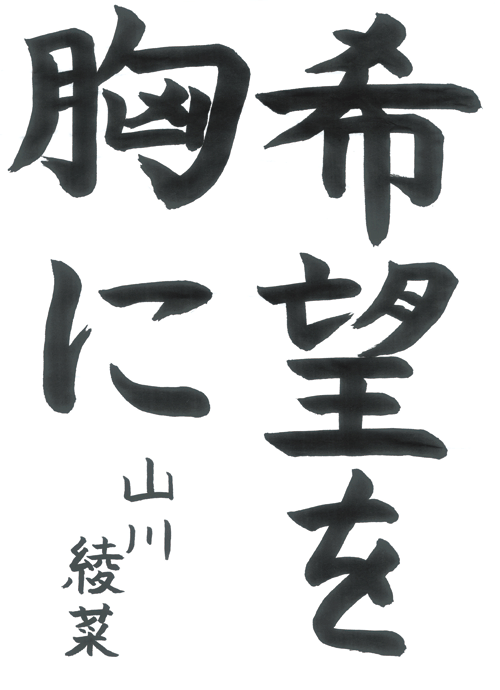 希望を
胸に
山川
綾菜